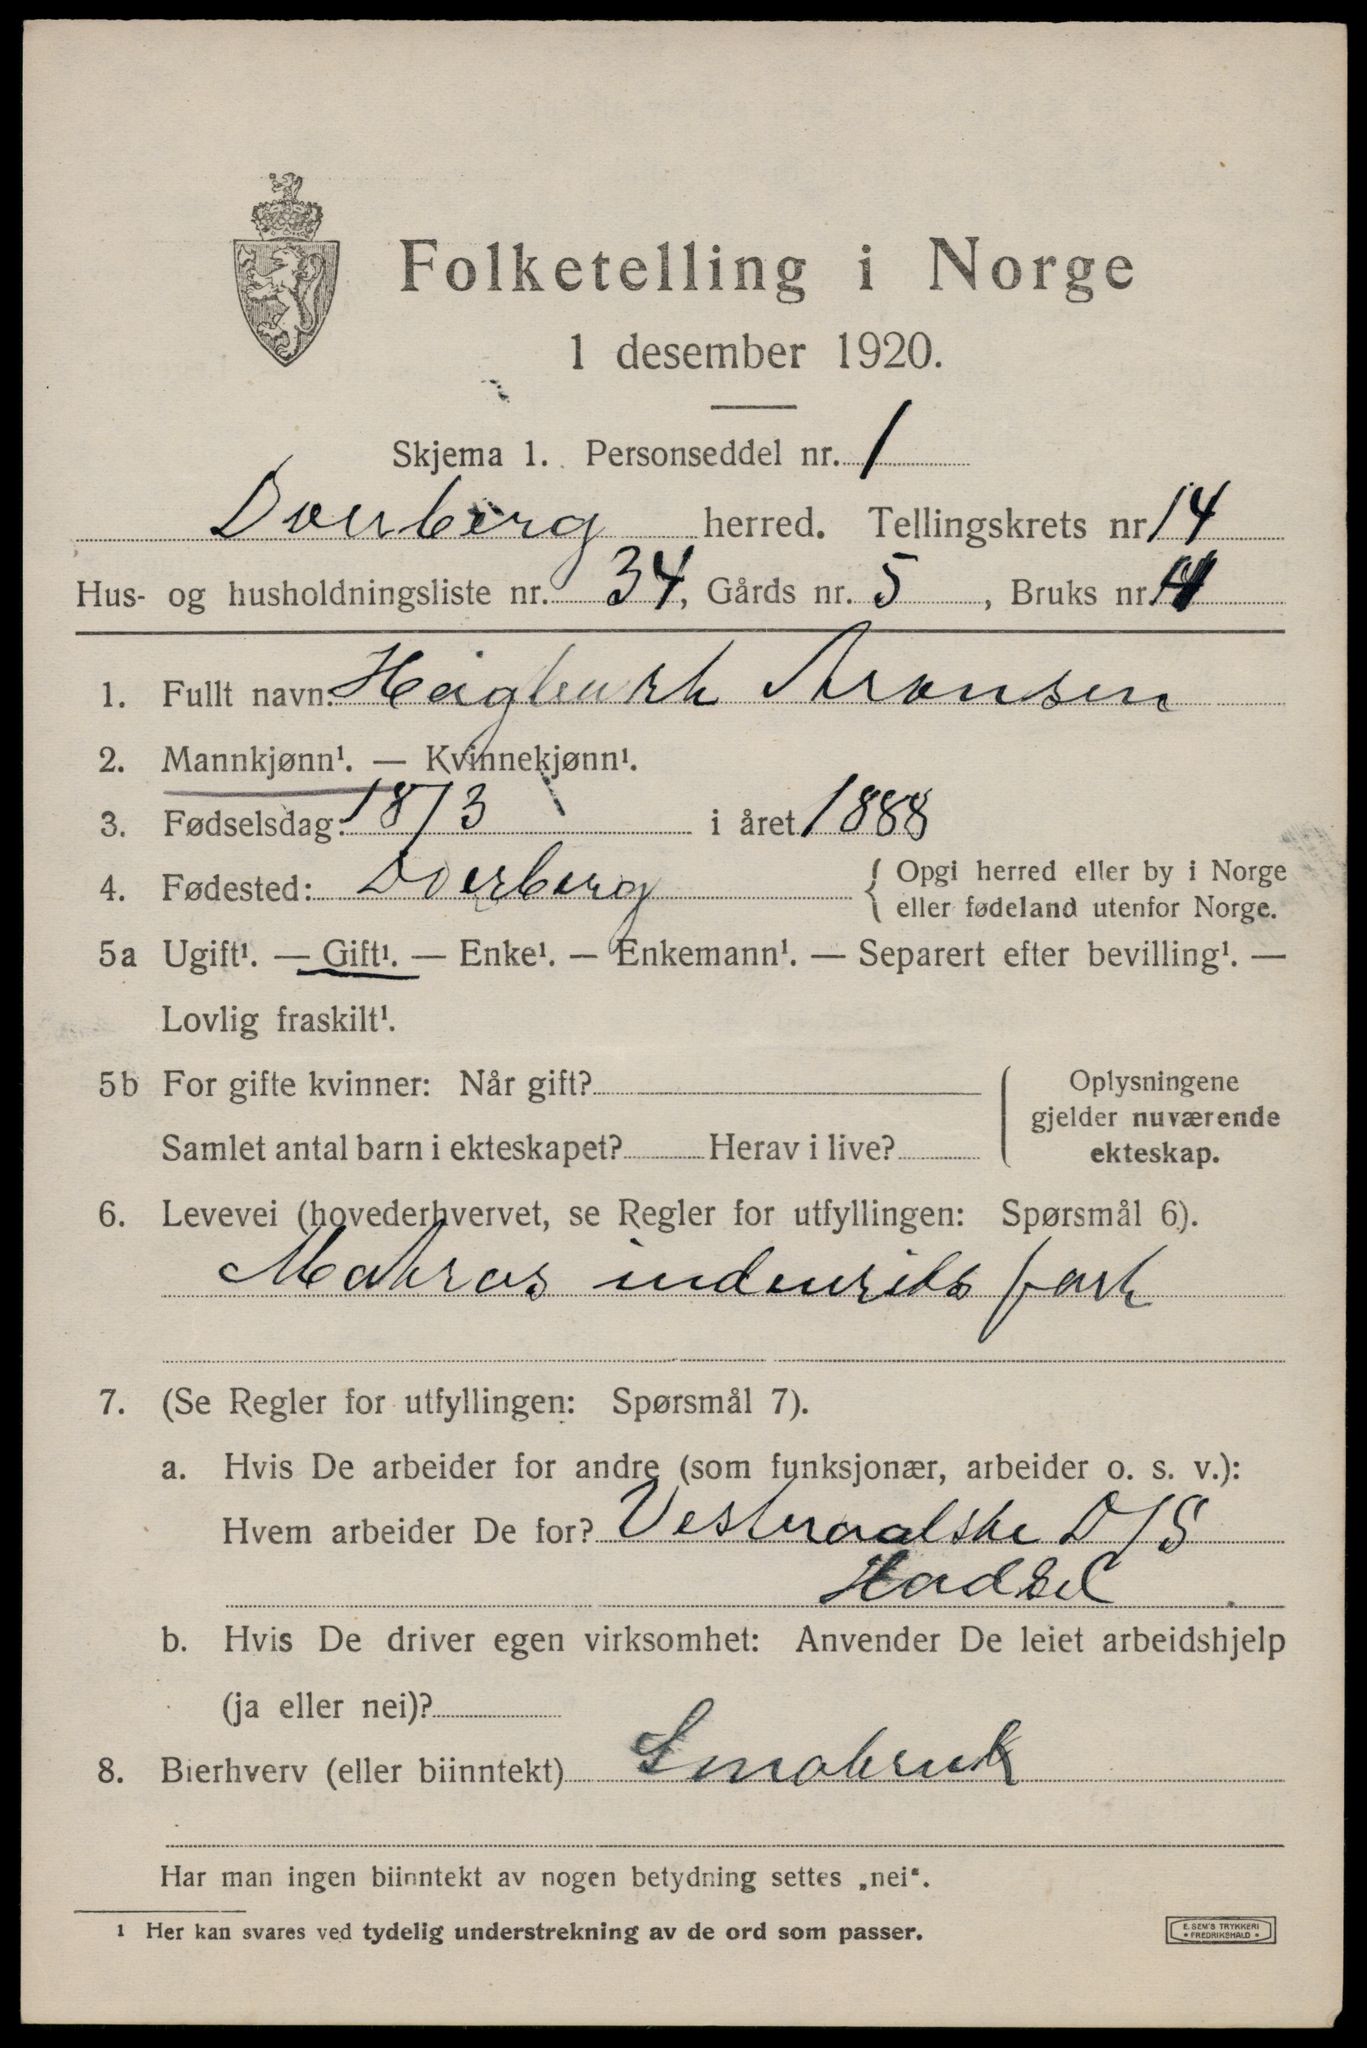 Folketelling i Norge
1 desember 1920.
Skjema 1. Personseddel nr. 1
Dverberg herred. Tellingskrets nr 14
Hus- og husholdningsliste nr. 34, Gårds nr. 5, Bruks nr.
1. Fullt navn: Aronsen
2. Mannkjønn¹. — Kvinnekjønn¹.
3. Fødselsdag: 18/3 i året 1888
4. Fødested: Dverberg { Opgi herred eller by i Norge
eller fødeland utenfor Norge.
5a Ugift¹. — Gift¹. — Enke¹. — Enkemann¹. — Separert efter bevilling¹. —
Lovlig fraskilt¹.
5b For gifte kvinner: Når gift?
Samlet antal barn i ekteskapet? Herav i live?
Oplysningene
gjelder nuværende
ekteskap.
6. Levevei (hovederhvervet, se Regler for utfyllingen: Spørsmål 6).
Matros indenriks fart
7. (Se Regler for utfyllingen: Spørsmål 7).
a. Hvis De arbeider for andre (som funksjonær, arbeider o. s. v.):
Hvem arbeider De for? Vesteraalske D/S
Hadsel
b. Hvis De driver egen virksomhet: Anvender De leiet arbeidshjelp
(ja eller nei)?
8. Bierhverv (eller biinntekt) Smabruk
Har man ingen biinntekt av nogen betydning settes „nei“.
¹ Her kan svares ved tydelig understrekning av de ord som passer.
E. SEM'S TRYKKERI
• FREDRIKSHALD •